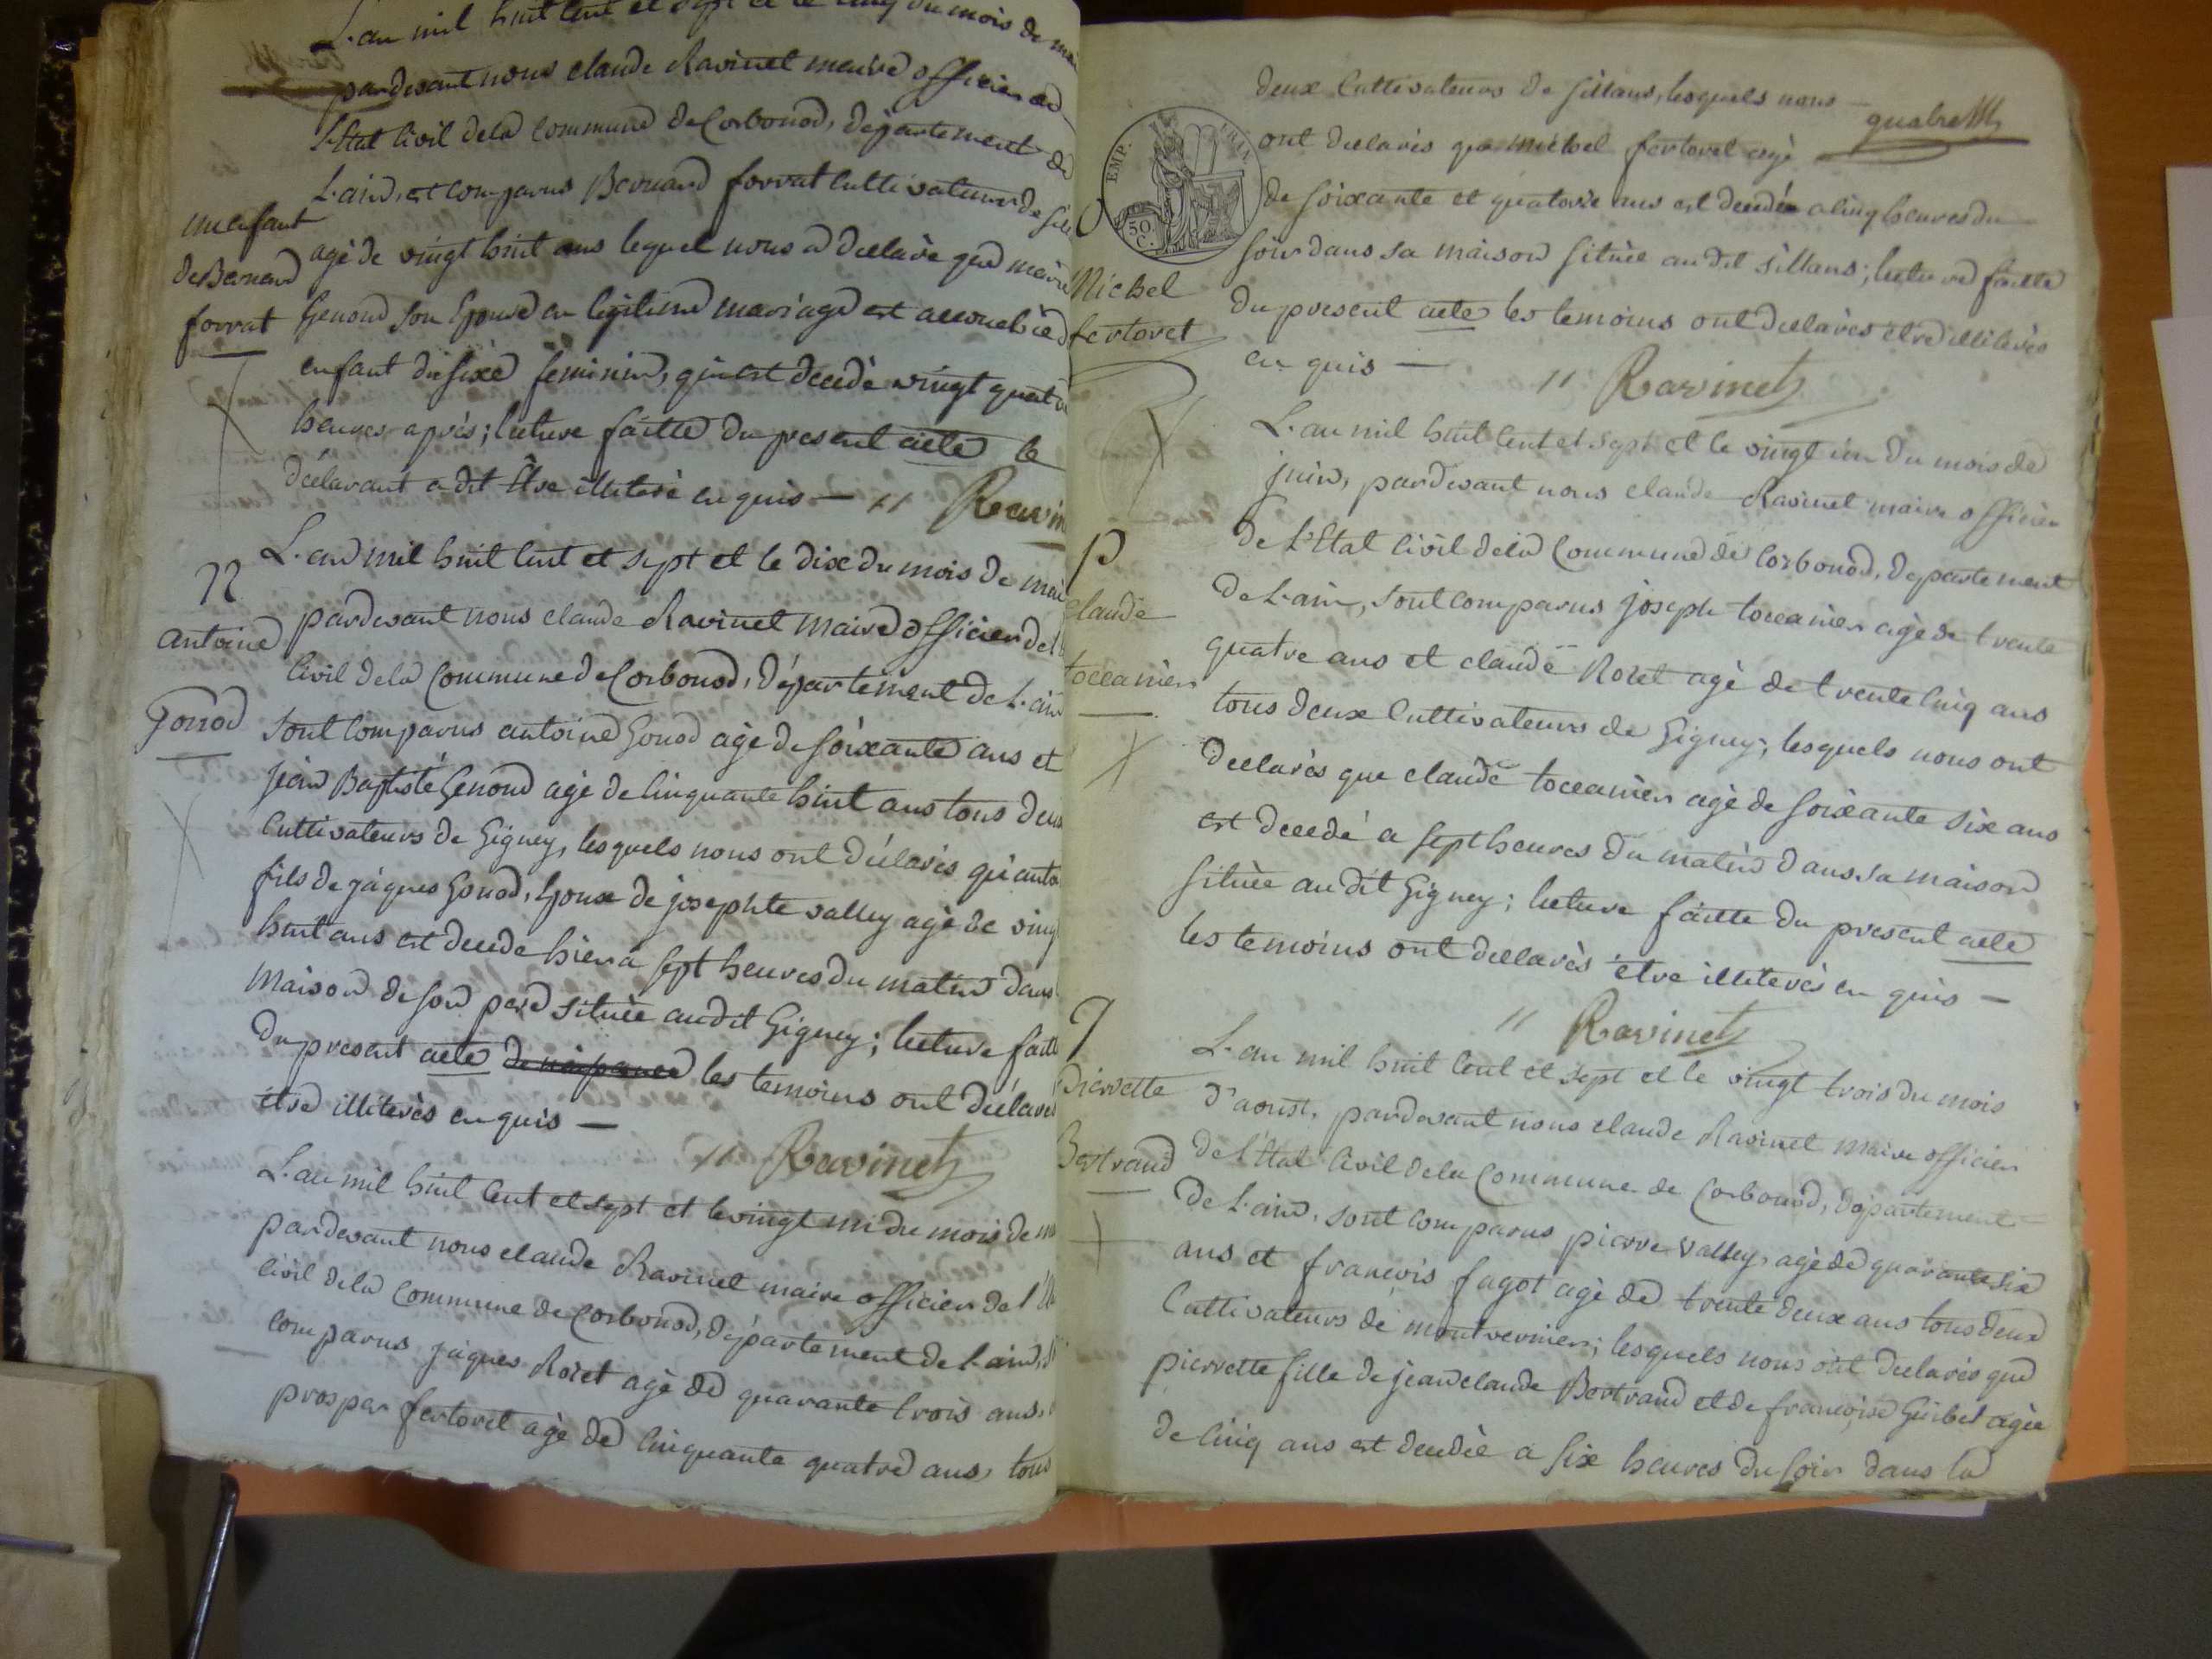 L'an mil huit cent et sept et le cinq du mois de mai
pardevant nous claude Ravinet maire officier de
l'Etat Civil de la Commune de Corbonod, département de
L'ain, est comparus Bernard forrat Cultivateur de
un enfant
de Bernard
forrat
agé de vingt huit ans lequel nous a declaré que
Genond son Epouse en légitime mariage est accouchée
enfant du sixe feminin, qui est decedé vingt quatre
heures après; lecture faitte du present acte le
déclarant a dit Etre illiteré enquis — " Ravin
N
Antoine
Gonod
L'an mil huit cent et sept et le dix du mois de mai
pardevant nous claude Ravinet maire officier de l
Civil de la Commune de Corbonod, département de L'ain
sont comparus antoine Gonod agé de soixante ans et
jean Baptiste Genond agé de cinquante huit ans tous deux
Cultivateurs de Gigney, lesquels nous ont déclarés qu'anto
fils de jâques Gonod, Epoux de josephte valley agé de ving
huit ans est decede hier a sept heures du matin dans
maison de son pere située audit Gigney; lecture faitt
du present acte de naissance les temoins ont déclarés
être illiterés enquis —
" Ravinet
L'an mil huit cent et sept et le vingt un du mois de m
pardevant nous claude Ravinet maire officier de l'Et
Civil de la Commune de Corbonod, département de L'ain,
comparus jâques Roset agé de quarante trois ans,
prosper fertoret agé de cinquante quatre ans, tous
deux Cultivateurs de sillans, lesquels nous —
quatre
EMP. FRAN
50 C.
ont declarés que michel fertoret agé
de soixante et quatorze ans est decedé a cinq heures du
soir dans sa maison située audit sillans; lecture faitte
du present acte les temoins ont declarés etre illiterés
enquis —
" Ravinet
Michel
fertoret
L'an mil huit cent et sept et le vingt un du mois de
juin, pardevant nous claude Ravinet maire officier
de L'Etat Civil de la Commune de Corbonod, departement
de L'ain, sont comparus joseph toccanier agé de trente
quatre ans et claude Roset agé de trente cinq ans
tous deux Cultivateurs de Gigney, lesquels nous ont
declarés que claude toccanier agé de soixante six ans
est decedé a sept heures du matin dans sa maison
située audit Gigney; lecture faitte du present acte
les temoins ont declarés être illiterés enquis —
" Ravinet
Claude
toccanier
L'an mil huit cent et sept et le vingt trois du mois
d'aoust, pardevant nous claude Ravinet maire officier
de l'Etat Civil de la Commune de Corbonod, département
de L'ain, sont comparus pierre valley, agé de quarante six
ans et françois fagot agé de trente deux ans tous deux
Cultivateurs de montvernier; lesquels nous ont declarés que
pierrette fille de jean claude Bertrand et de françoise Guibet agée
de cinq ans est decedée a six heures du soir dans la
Pierrette
Bertrand